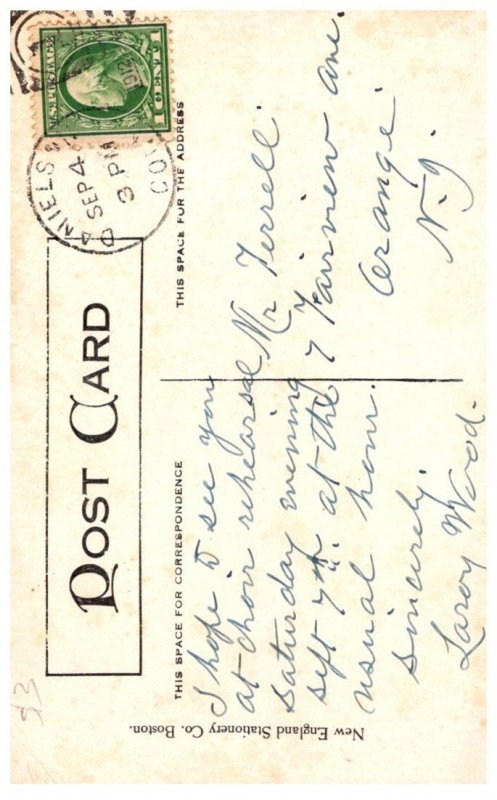 U.S. POSTAGE
1 CENT 1
DANIELS
SEP 4
3 PM
1912
CO
POST CARD
THIS SPACE FOR CORRESPONDENCE
THIS SPACE FOR THE ADDRESS
I hope to see you
at choir rehearsal
saturday evening
sept 7th. at the
usual hour.
sincerely.
Laroy Wood.
Mr Terrell
7 Fairview Ave.
Orange
N. J.
New England Stationery Co. Boston.